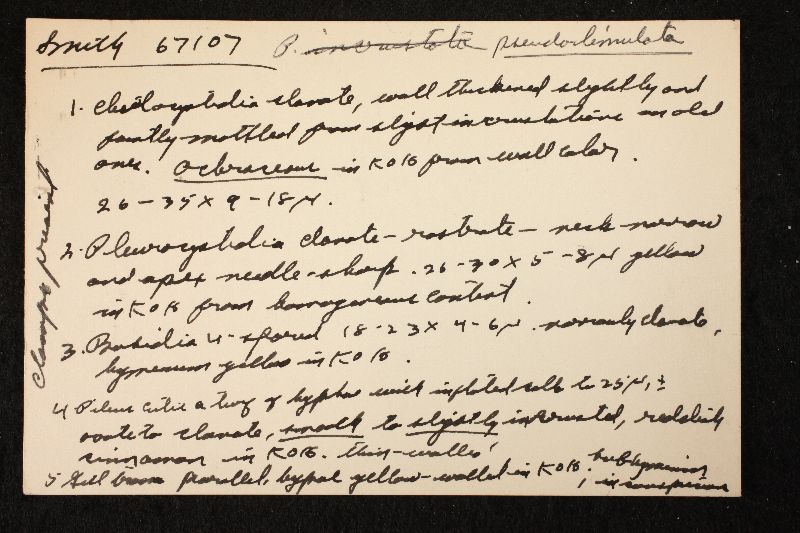 Smith 67107 P. incrustata pseudolimulata
1. Cheilocystidia clavate, wall thickened slightly and
faintly mottled from slight incrustations on old
ones. Ochraceous in KOH from wall color.
26-35 X 9-18 μ.
2. Pleurocystidia clavate-rostrate - neck narrow
and apex needle-sharp. 26-30 X 5-8 μ yellow
in KOH from homogeneous content.
3. Basidia 4-spored 18-23 X 4-6 μ. narrowly clavate,
hymenium yellow in KOH.
4 Pileus cutis a turf of hyphae with inflated cells to 25 μ, ±
ovate to clavate, smooth to slightly incrusted, reddish
cinnamon in KOH. thin-walled
5 Gill trama parallel, hyphae yellow-walled in KOH; subhymenium
inconspicuous
Clamps present